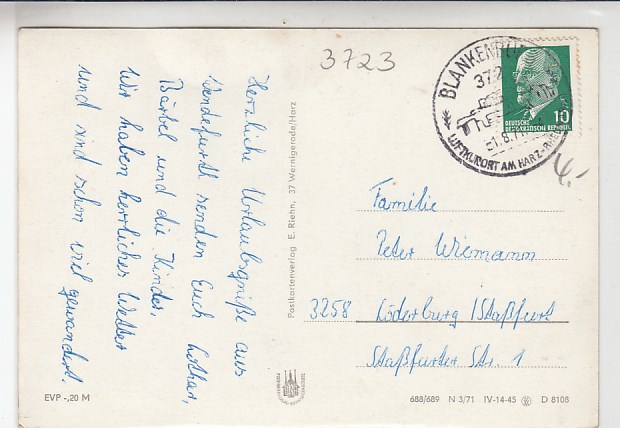 3723
BLANKENBURG
372
31.8.71
LUFTKURORT AM HARZ
10
DEUTSCHE
DEMOKRATISCHE REPUBLIK
4.-
Herzliche Urlaubsgrüße aus
Wendefurth senden Euch Lothar,
Bärbel und die Kinder.
Wir haben herrliches Wetter
und sind schon viel gewandert.
Postkartenverlag E. Riehn, 37 Wernigerode/Harz
Familie
Peter Wiemann
3258 Löderburg /Staßfurt
Staßfurter Str. 1
EVP -,20 M
688/689 N 3/71 IV-14-45 D 8108